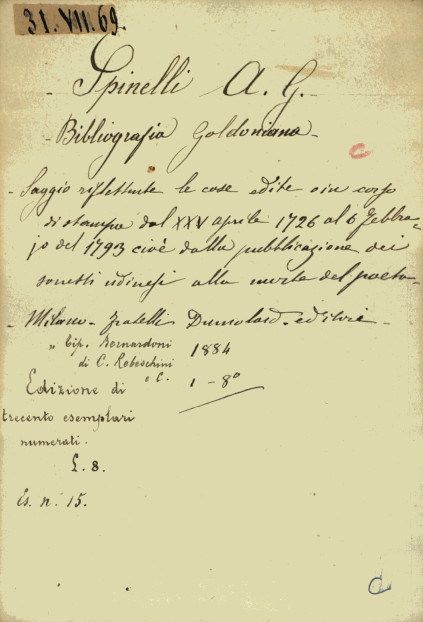 31.VII.69.
- Spinelli A. G. -
- Bibliografia Goldoniana -
- Saggio riflettente le cose edite o in corso
di stampa dal XXV aprile 1726 al 6 febbra-
jo del 1793 cioè dalla pubblicazione dei
sonetti udinesi alla morte del poeta -
- Milano - fratelli Dumolard - editori -
" tip. Bernardoni
di C. Rebeschini
e C.
1884
1 - 8°
Edizione di
trecento esemplari
numerati.
L. 8.
Es. n. 15.
C